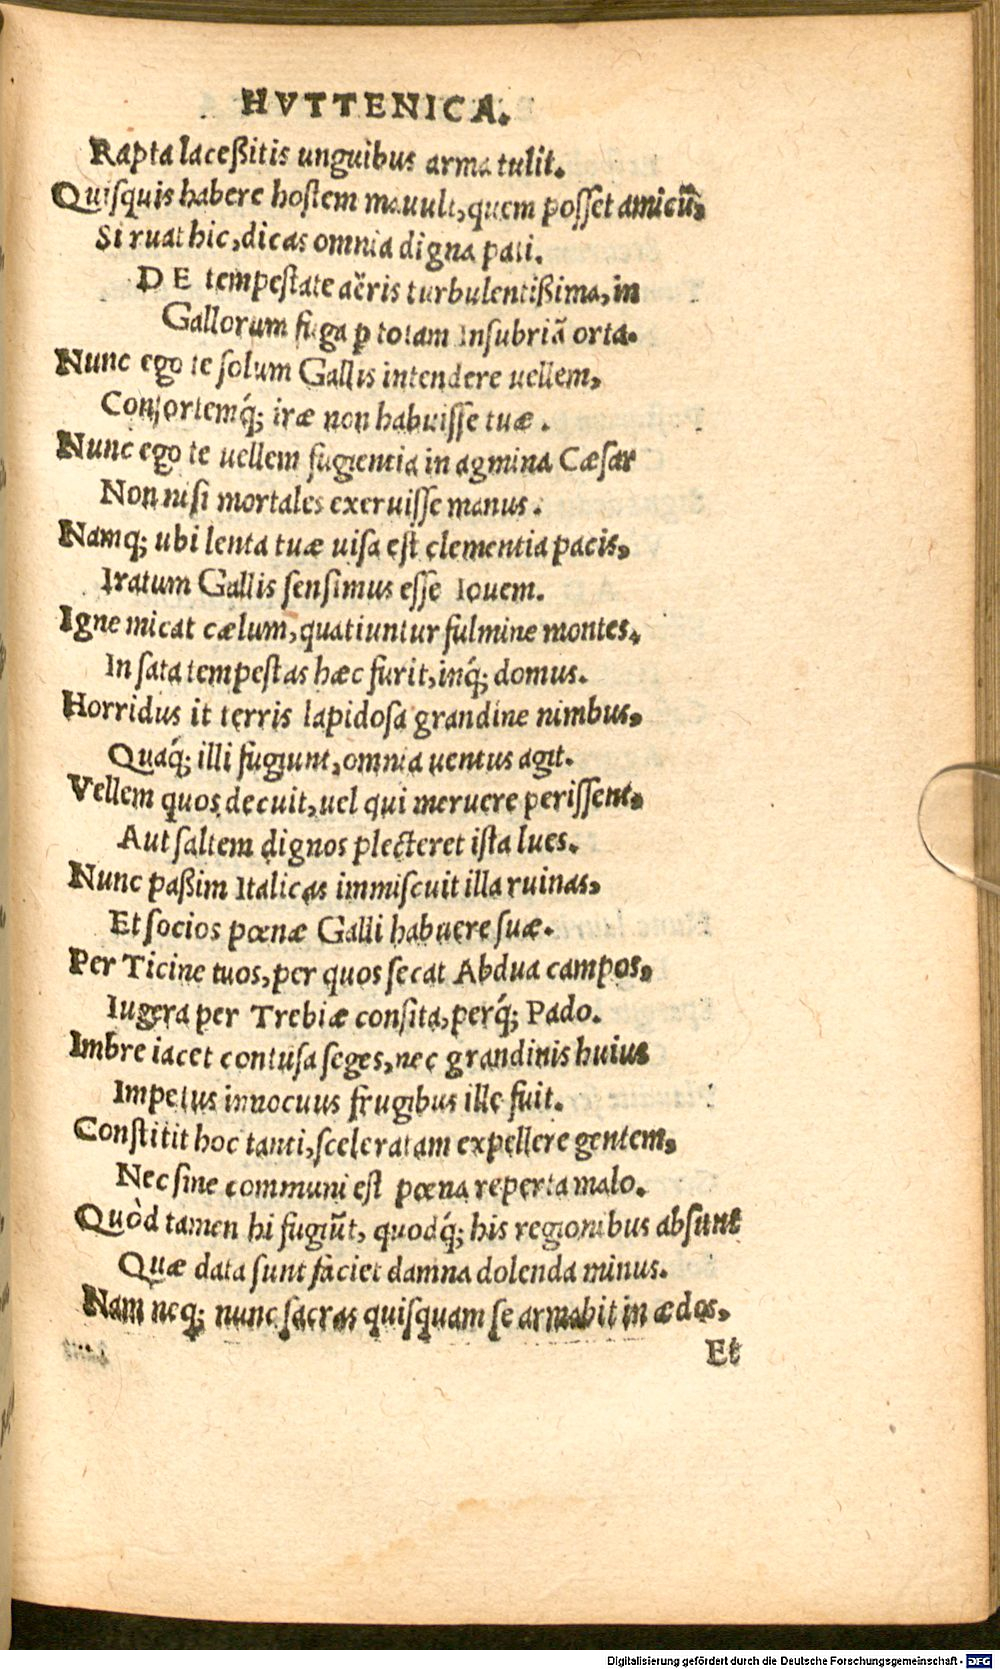 HVTTENICA.
Rapta laceßitis unguibus arma tulit.
Quiſquis habere hoſtem mauult, quem poſſet amicũ,
Si ruat hic, dicas omnia digna pati.
DE tempeſtate aëris turbulentißima, in
Gallorum fuga ꝑ totam Inſubriã orta.
Nunc ego te ſolum Gallis intendere uellem,
Conſortemq́; iræ non habuiſſe tuæ.
Nunc ego te uellem fugientia in agmina Cæſar
Non niſi mortales exeruiſſe manus.
Namq; ubi lenta tuæ uiſa eſt clementia pacis,
Iratum Gallis ſenſimus eſſe Iouem.
Igne micat cælum, quatiuntur fulmine montes,
In ſata tempeſtas hæc furit, inq́; domus.
Horridus it terris lapidoſa grandine nimbus,
Quaq́; illi fugiunt, omnia uentus agit.
Vellem quos decuit, uel qui meruere periſſent,
Aut ſaltem dignos plecteret iſta lues.
Nunc paßim Italicas immiſcuit illa ruinas,
Et ſocios pœnæ Galli habuere ſuæ.
Per Ticine tuos, per quos ſecat Abdua campos,
Iugera per Trebiæ conſita, perq́; Pado.
Imbre iacet contuſa ſeges, nec grandinis huius
Impetus innocuus frugibus ille fuit.
Conſtitit hoc tanti, ſceleratam expellere gentem,
Nec ſine communi eſt pœna reperta malo.
Quòd tamen hi fugiũt, quodq́; his regionibus abſunt
Quæ data ſunt faciet damna dolenda minus.
Nam neq; nunc ſacras quiſquam ſe armabit in ædos,
Et
Digitalisierung gefördert durch die Deutsche Forschungsgemeinschaft - DFG